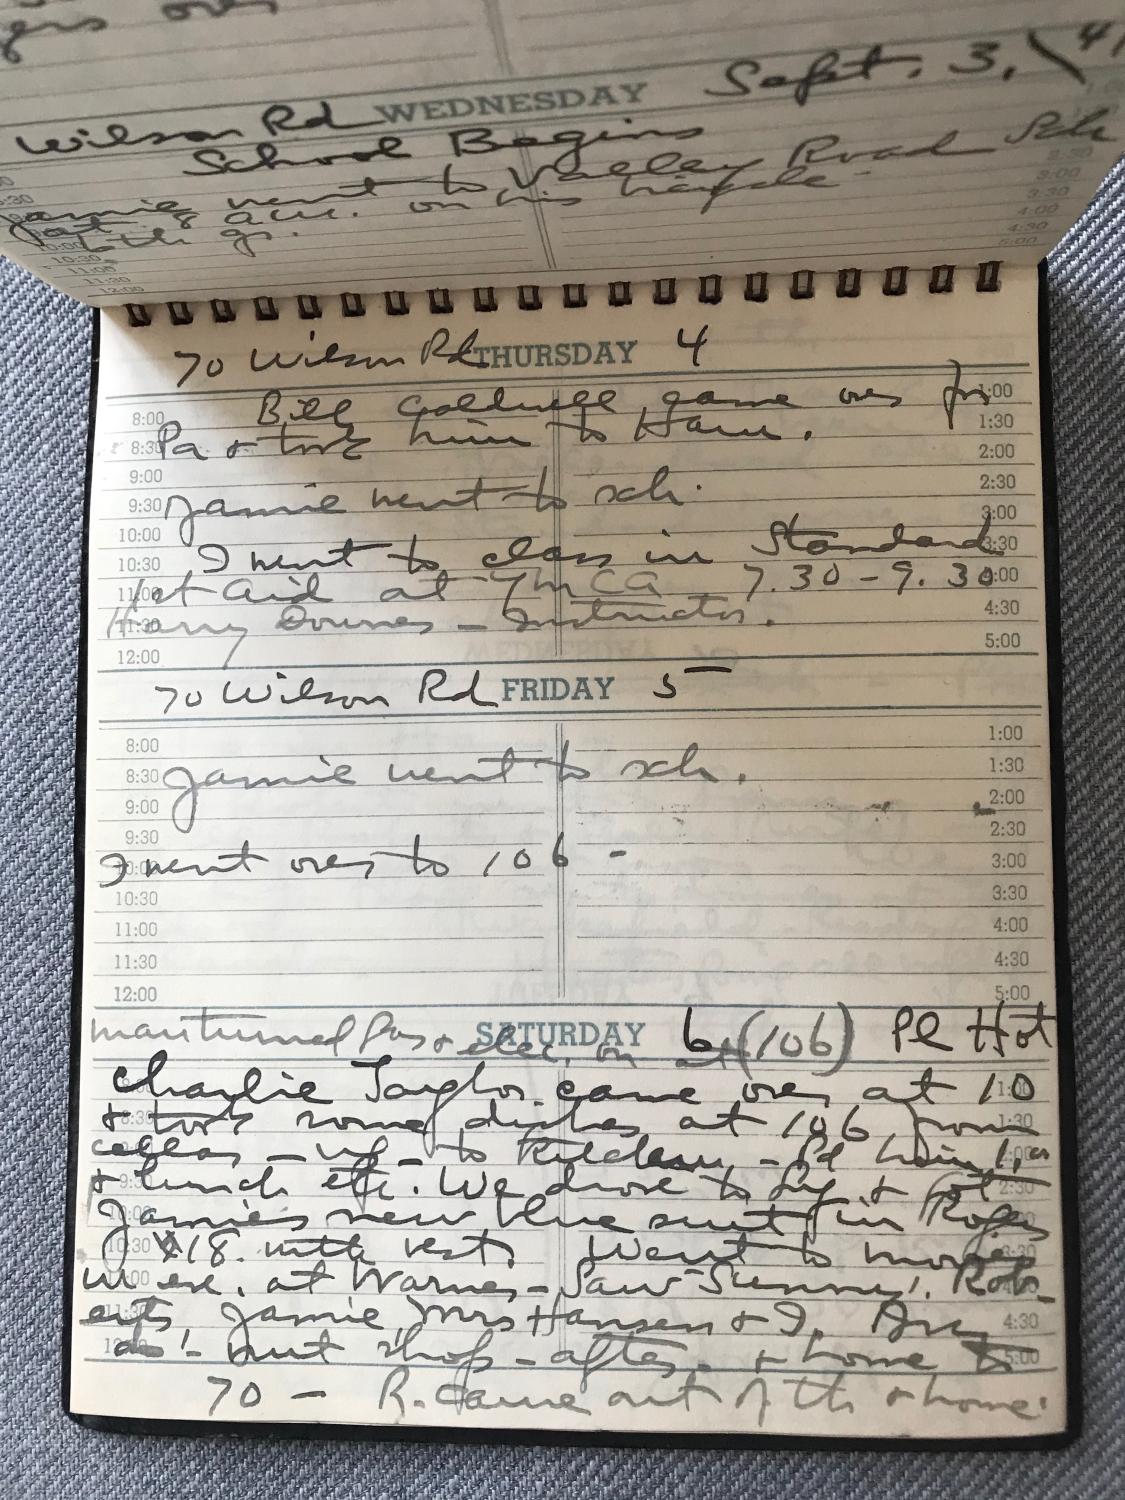 Wilson Rd WEDNESDAY Sept. 3, '41
School Begins
Jamie went to Valley Road Sch
at 8 a.m. on his bicycle.
6th gr.
10:30
11:00
11:30
12:00
2:30
3:00
3:30
4:00
4:30
5:00
70 Wilson Rd THURSDAY 4
8:00 Bill Caldwell came over for 1:00
8:30 Pa & took him to Ham. 1:30
9:00 2:00
9:30 Jamie went to sch. 2:30
10:00 3:00
10:30 I went to class in Standard 3:30
11:00 1st Aid at YMCA 7.30-9.30 4:00
11:30 Harry Downes - Instructor. 4:30
12:00 5:00
70 Wilson Rd FRIDAY 5
8:00 1:00
8:30 Jamie went to sch. 1:30
9:00 2:00
9:30 2:30
10:00 I went over to 106 - 3:00
10:30 3:30
11:00 4:00
11:30 4:30
12:00 5:00
man turned gas & elec. on SATURDAY 6 (106) Pl Hot
Charlie Taylor came over at 10
& took some dishes at 106 from
cellar - up to Kitchen - Pd him
& lunch etc. We drove to & got
Jamie's new blue suit in Rogers
$18. with vest. Went to movie
in eve. at Warner - Saw Sunny. Rob-
erts, Jamie, Mrs Hansen & I.
nut shop - after. & home to
70 - R. came out of th & home.